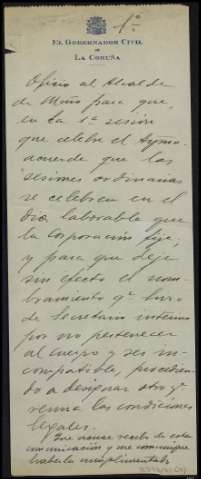 1º
EL GOBERNADOR CIVIL
DE
LA CORUÑA
Oficio al Alcalde
de Miño para que,
en la 1ª sesión
que celebre el Aymo.
acuerde que las
sesiones ordinarias
se celebren en el
dia laborable que
la Corporación fije,
y para que deje
sin efecto el nom-
bramiento qe. hizo
de Secretario interino
por no pertenecer
al cuerpo y ser in-
compatible, procedien-
do a designar otro qe.
reuna las condiciones
legales.
Que acuse recibo de esta
comunicación y me comunique
haberla cumplimentado